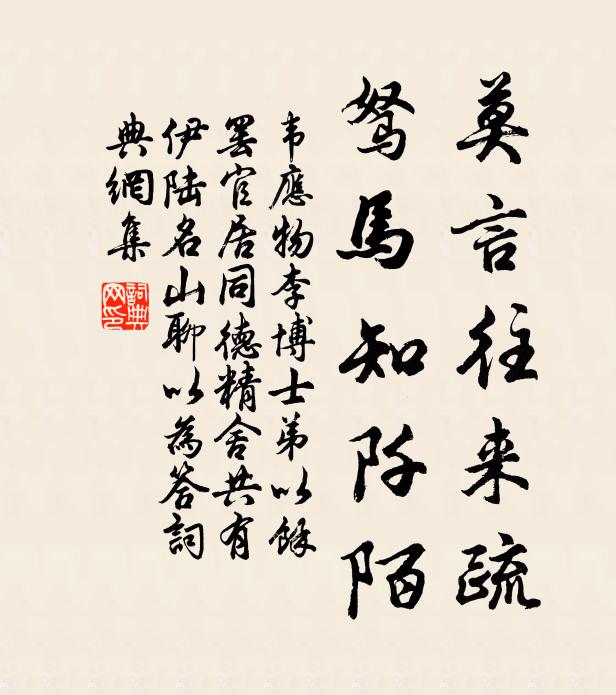 莫言往来疏
驽馬知阡陌
韦應物李博士弟以餘
罢官居同德精舍共有
伊陆名山聊以為答詞
典網集
詞典网印